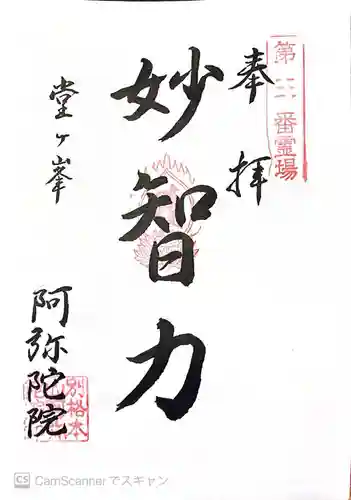 奉拝
第二番霊場
妙智力
堂ヶ峯
阿弥陀院
別格本
CamScannerでスキャン